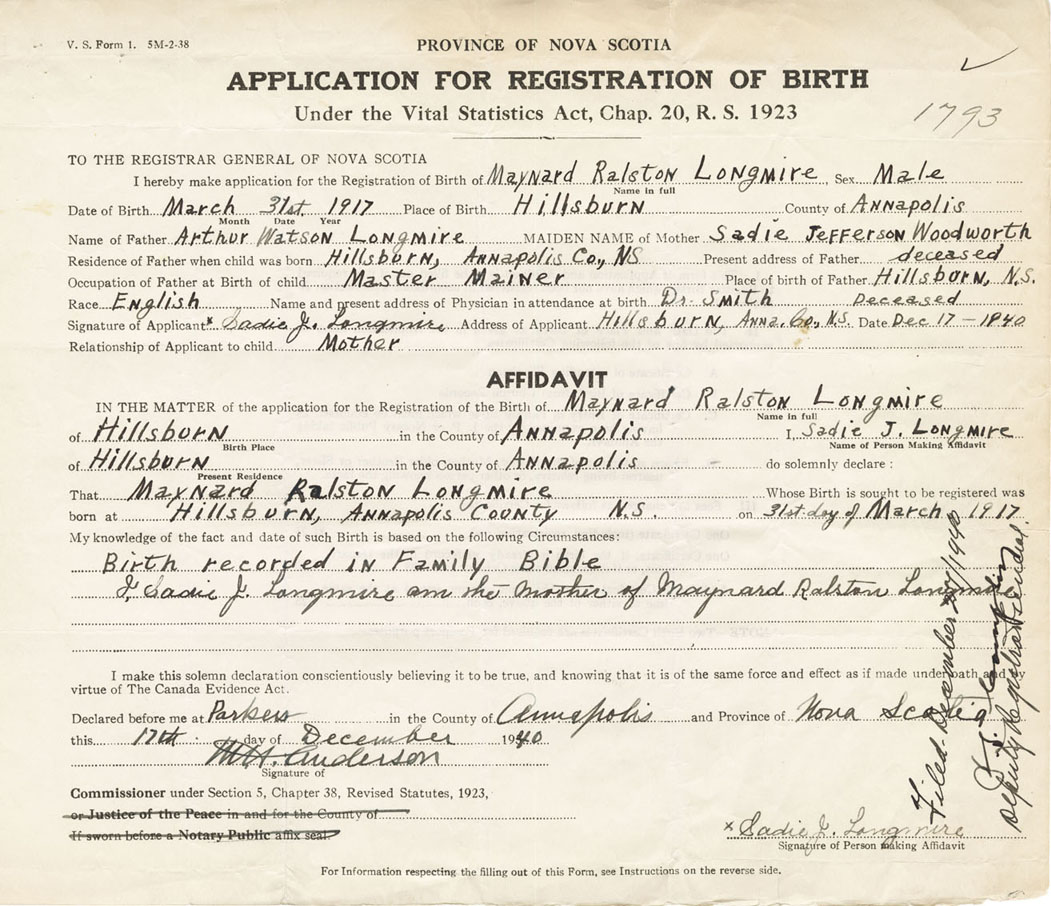 V. S. Form 1. 5M-2-38
PROVINCE OF NOVA SCOTIA
APPLICATION FOR REGISTRATION OF BIRTH
Under the Vital Statistics Act, Chap. 20, R. S. 1923
1793
TO THE REGISTRAR GENERAL OF NOVA SCOTIA
I hereby make application for the Registration of Birth of Maynard Ralston Longmire Sex Male
Name in full
Date of Birth March 31st 1917 Place of Birth Hillsburn County of Annapolis
Month Date Year
Name of Father Arthur Watson Longmire MAIDEN NAME of Mother Sadie Jefferson Woodworth
Residence of Father when child was born Hillsburn, Annapolis Co., NS Present address of Father deceased
Occupation of Father at Birth of child Master Mainer Place of birth of Father Hillsburn, N.S.
Race English Name and present address of Physician in attendance at birth Dr. Smith Deceased
Signature of Applicant x Sadie J. Longmire Address of Applicant Hillsburn, Anna. Co., N.S. Date Dec 17 - 1940
Relationship of Applicant to child Mother
AFFIDAVIT
IN THE MATTER of the application for the Registration of the Birth of Maynard Ralston Longmire
Name in full
of Hillsburn in the County of Annapolis I, Sadie J. Longmire
Birth Place Name of Person Making Affidavit
of Hillsburn in the County of Annapolis do solemnly declare :
Present Residence
That Maynard Ralston Longmire Whose Birth is sought to be registered was
born at Hillsburn, Annapolis County N.S. on 31st day of March 1917
My knowledge of the fact and date of such Birth is based on the following Circumstances:
Birth recorded in Family Bible
I, Sadie J. Longmire am the mother of Maynard Ralston Longmire
I make this solemn declaration conscientiously believing it to be true, and knowing that it is of the same force and effect as if made under oath and by
virtue of The Canada Evidence Act.
Declared before me at Parkers in the County of Annapolis and Province of Nova Scotia
this 17th day of December 1940
Anderson
Signature of
Commissioner under Section 5, Chapter 38, Revised Statutes, 1923,
or Justice of the Peace in and for the County of
If sworn before a Notary Public affix seal.
x Sadie J. Longmire
Signature of Person making Affidavit
For Information respecting the filling out of this Form, see Instructions on the reverse side.
Filed December 1940
Deputy Registrar General